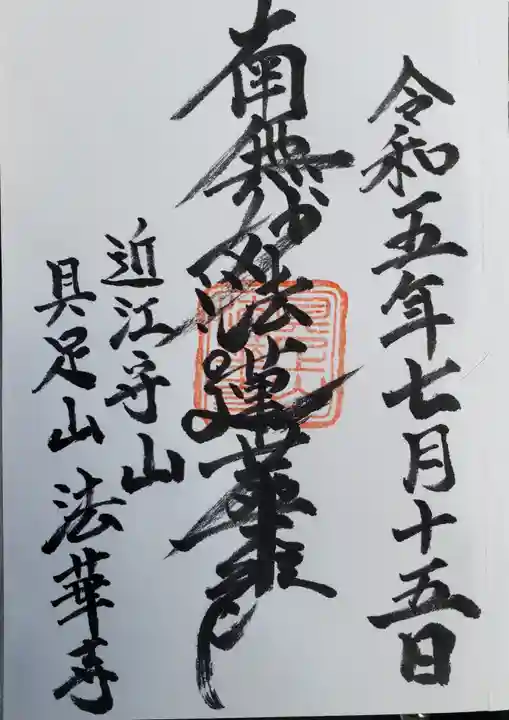 令和五年七月十五日
南無妙法蓮華経
近江守山
具足山 法華寺